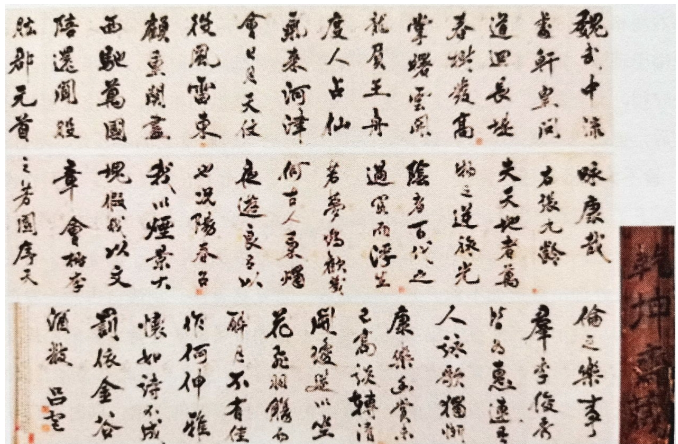 魏武中流
處軒皇問
道回長堤
春樹發高
掌曙雲開
龍負王舟
度人占仙
氣來河津
會日月天仗
役風雷東
顧重關盡
西馳萬國
陪還聞股
肱郡元首
咏康哉
右張九齡
夫天地者萬
物之逆旅光
陰者百代之
過客而浮生
若夢為歡幾
何古人秉燭
夜遊良有以
也況陽春召
我以煙景大
塊假我以文
章會桃李
之芳園序天
倫之樂事
羣季俊秀
皆為惠連吾
人詠歌獨慚
康樂幽賞未
已高談轉清
開瓊筵以坐
花飛羽觴而
醉月不有佳
作何伸雅
懷如詩不成
罰依金谷
酒數 呂宮
乾坤齋